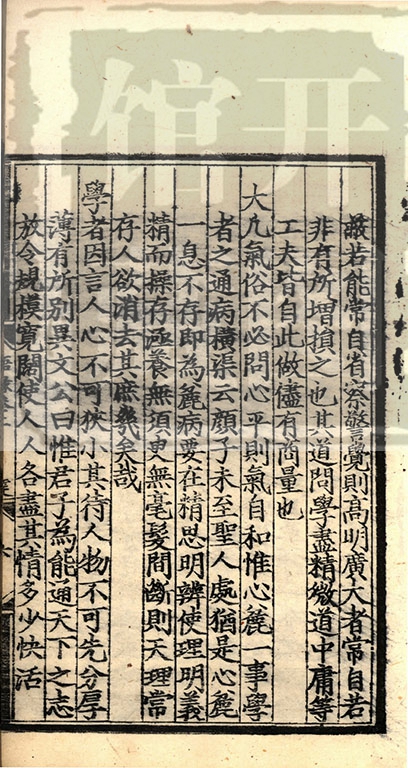 蔽若能常自省察警覺則高明廣大者常自若
非有所増損之也其道問學盡精微道中庸等
工夫皆自此做儘有商量也
大凢氣俗不必問心平則氣自和惟心麄一事學
者之通病橫渠云顔子未至聖人處猶是心麄
一息不存即為麄病要在精思明辨使理明義
精而操存涵養無須㬰無毫髪間斷則天理常
存人欲消去其庶㡬矣哉
學者因言人心不可狹小其待人物不可先分厚
薄有所別異文公曰惟君子為能通天下之志
放令規模寛闊使人人各盡其情多少快活